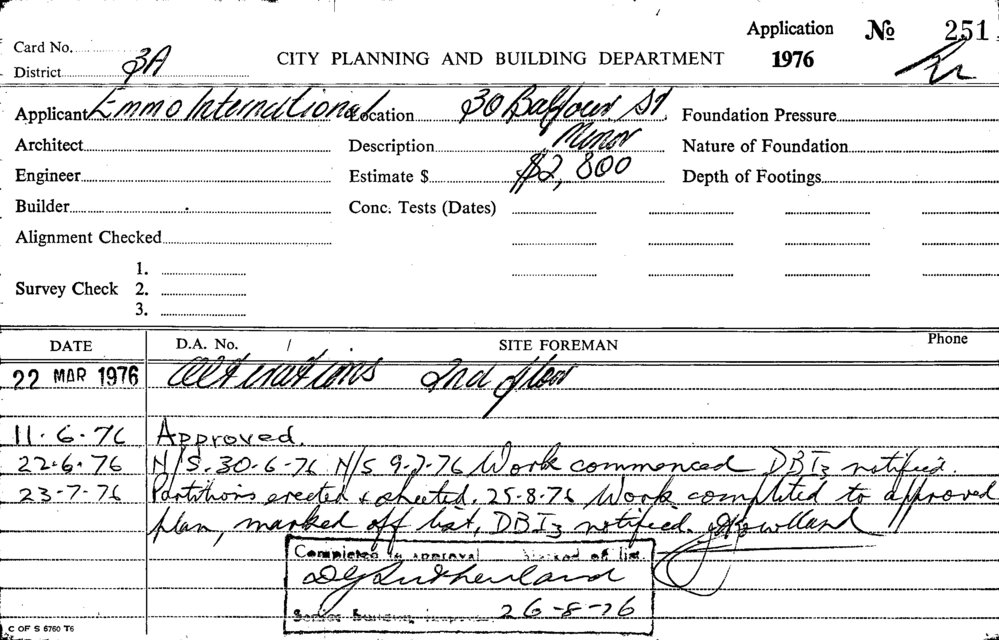 Application № 251
Card No.
District 3A CITY PLANNING AND BUILDING DEPARTMENT 1976
Applicant Emmo International Location 30 Balfour St. Foundation Pressure
Architect Description Minor Nature of Foundation
Engineer Estimate $ $2,800 Depth of Footings
Builder Conc. Tests (Dates)
Alignment Checked
1.
Survey Check 2.
3.
DATE D.A. No. / SITE FOREMAN Phone
22 MAR 1976 Alterations 2nd floor
11.6.76 Approved.
22.6.76 N/S. 30-6-76 N/S 9-7-76 Work commenced DBI3 notified.
23-7-76 Partitions erected & sheeted. 25-8-76 Work completed to approved
plan, marked off list, DBI3 notified. JRowlland
Completed to approval Marked of list.
DGSutherland
Senior Building Inspector 26-8-76
C OF S 6760 T6